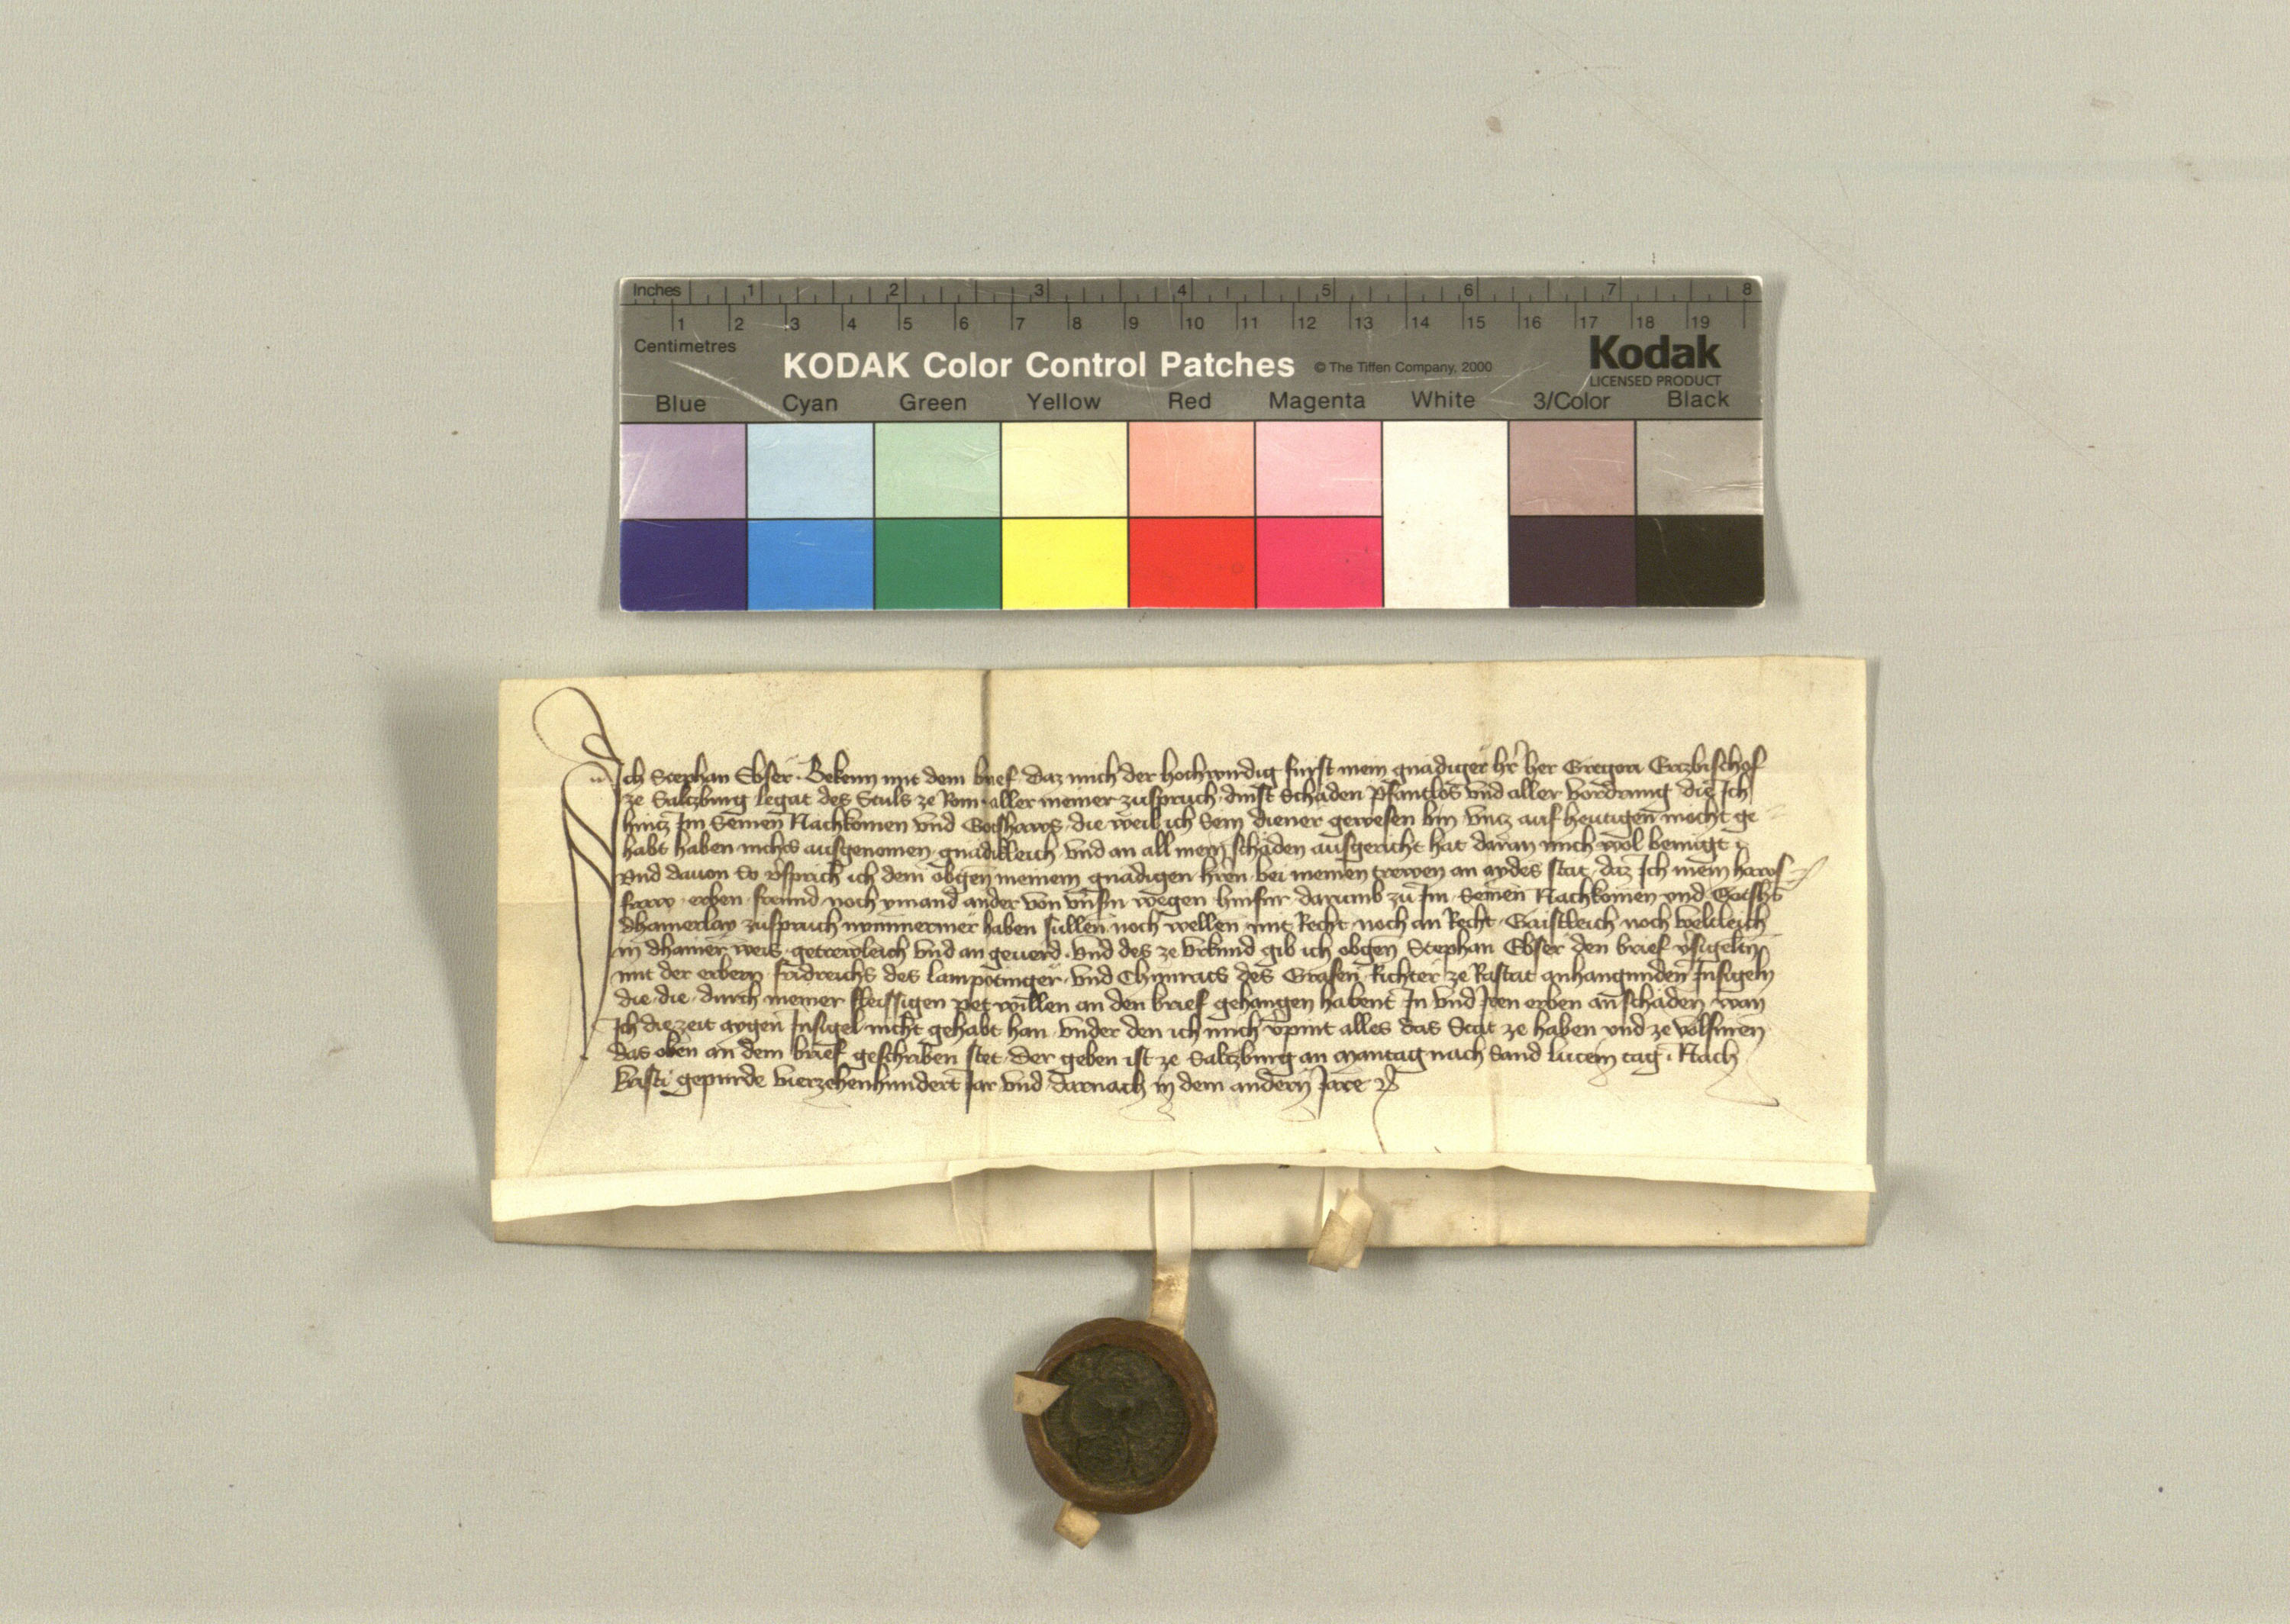 Inches 1 2 3 4 5 6 7 8
1 2 3 4 5 6 7 8 9 10 11 12 13 14 15 16 17 18 19
Centimetres
KODAK Color Control Patches © The Tiffen Company, 2000 Kodak
LICENSED PRODUCT
Blue Cyan Green Yellow Red Magenta White 3/Color Black
Ich Stephan Ebser Bekenn mit dem brief daz mich der hochwirdig fürst mein gnädiger hr her Gregori Ertzbischof
ze Saltzburg legat des Stuls ze Rom aller meiner zuspruch dinst Schäden Pfantlos vnd aller vordrung die Ich
hintz Im Seinen Nachkomen vnd Gotshaws die weil ich Sein diener gewesen bin vntz auf heutigen möcht ge
habt haben nichts ausgenomen gnädikleich vnd an all mein schäden ausgericht hat daran mich wol benügt
vnd dauon So v̉sprich ich dem obgen meinem gnädigen hren bei meinen trewen an aydes stat daz Ich mein haws
fraw erben frewnd noch ymand ander von vnsn wegen hinfür darumb zu Im Seinen Nachkomen vnd Gotshs
dhainerlay zuspruch nymmermer haben sullen noch wellen mit Recht noch an Recht Gaistleich noch weltleich
in dhainer weis getrewleich vnd an geuerd vnd des ze vrkund gib ich obgen Stephan Ebser den brief v̉sigelten
mit der erbern fridreichs des lampotinger vnd Chunrats des Grafen Richter ze Rastat anhangunden Insigeln
die die durch meiner fleissigen pet willen an den brief gehangen habent In vnd Iren erben an schaden wan
Ich die zeit aygen Insigel nicht gehabt han vnder den ich mich v̉pint alles das Stat ze haben vnd ze volfüren
das oben an dem brief geschriben stet Der geben ist ze Saltzburg an Mantag nach Sand lucein tag Nach
kristi gepurde vierzehenhundert Iar vnd darnach in dem andern Jare